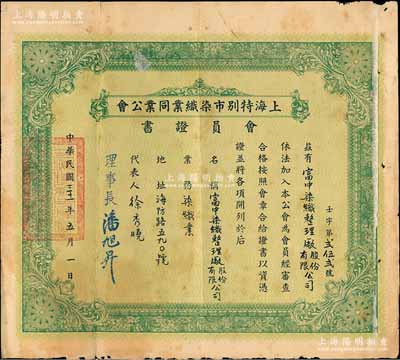 上海陽明拍賣
上海特別市染織業同業公會
會員證書
士字第貳伍貳號
茲有富中染織整理廠股份有限公司
依法加入本公會為會員經審查
合格按照會章合給證書以資憑
證並將各項開列於後
名稱 富中染織整理廠股份有限公司
業務 染織業
地址 海防路五九〇號
代表人 徐秀曉
理事長 潘旭昇
中華民國三十二年五月一日
上海陽明拍賣